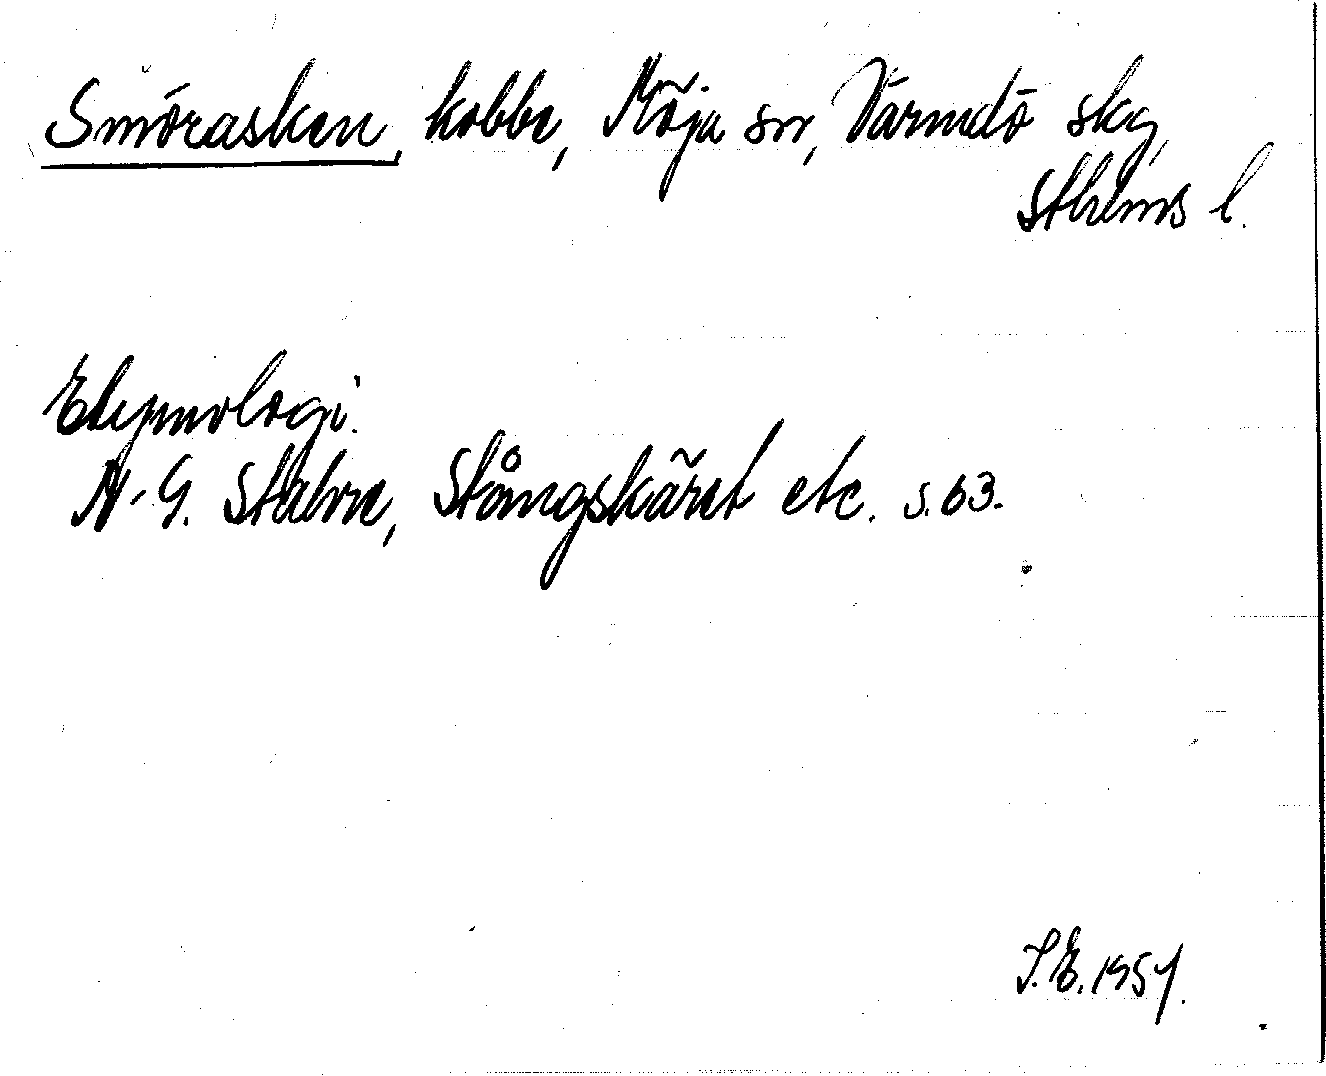 Smörasken, kobbe, Möja sn, Värmdö skg,
Sthlms l.
Etymologi.
N-G. Stahre, Stångskäret etc. s. 63.
S.E. 1957.